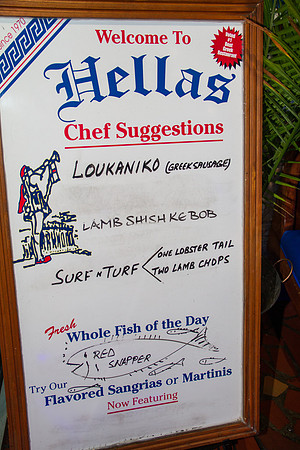 since 1970
Welcome To
Hellas
Chef Suggestions
LOUKANIKO (GREEK SAUSAGE)
LAMB SHISH KEBOB
SURF N TURF
ONE LOBSTER TAIL
TWO LAMB CHOPS
Fresh
Whole Fish of the Day
RED
SNAPPER
Try Our
Flavored Sangrias or Martinis
Now Featuring